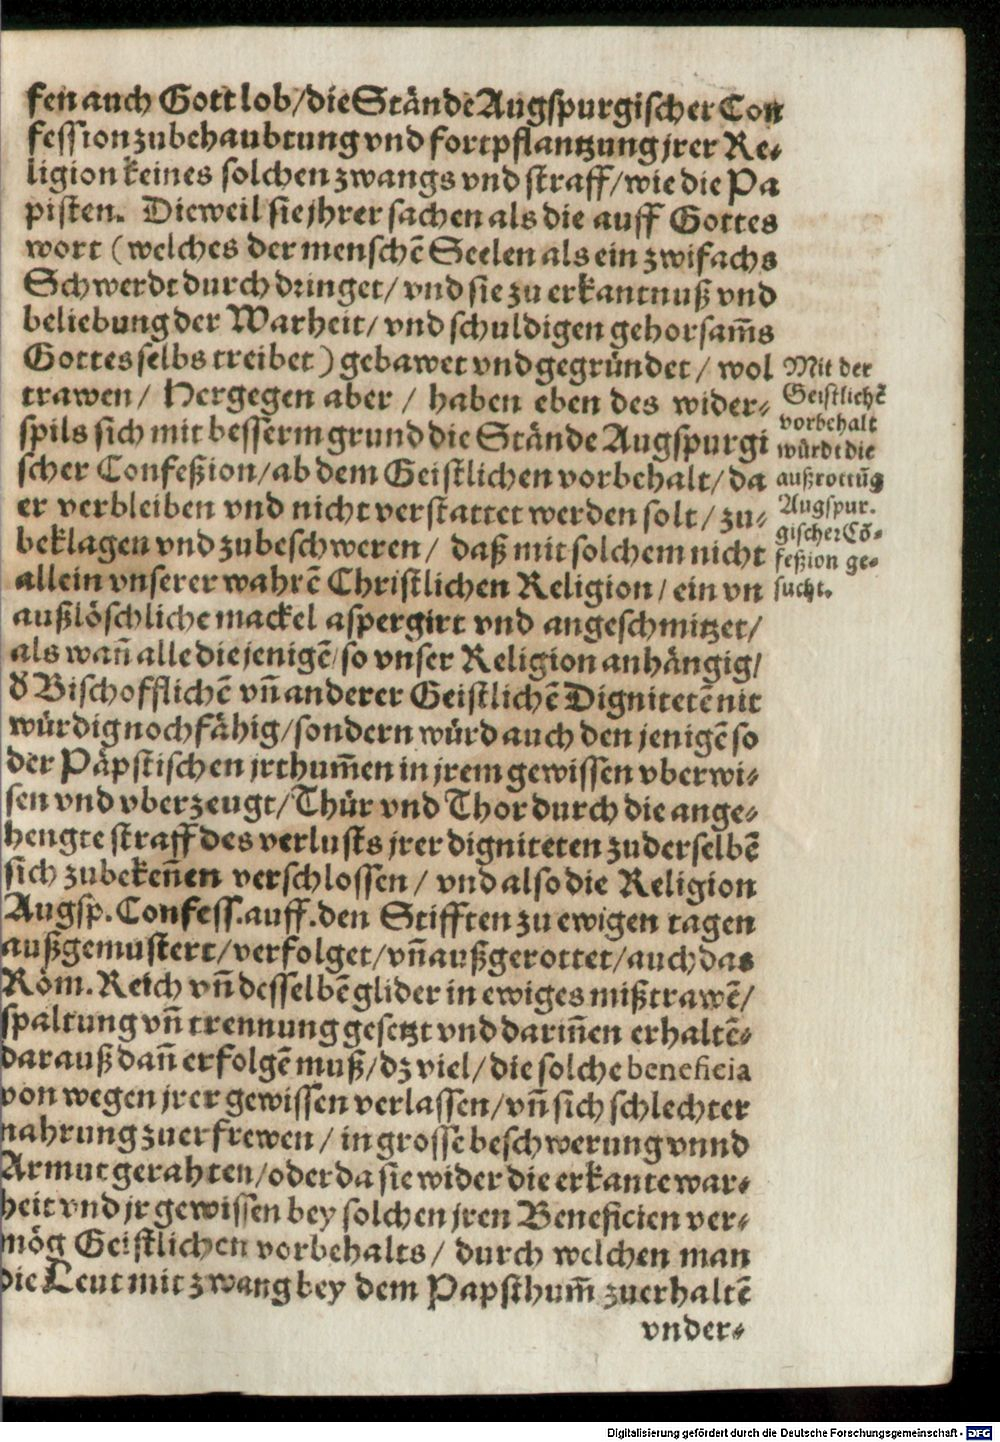 fen auch Gott lob/die Stände Augspurgischer Con
fession zubehaubtung vnd fortpflantzung jrer Re-
ligion keines solchen zwangs vnd straff/wie die Pa
pisten. Dieweil sie jhrer sachen als die auff Gottes
wort (welches der menschē Seelen als ein zwifachs
Schwerdt durch dringet/ vnd sie zu erkantnuß vnd
beliebung der Warheit/ vnd schuldigen gehorsam̄s
Gottes selbs treibet) gebawet vnd gegründet/ wol
trawen/ Hergegen aber/ haben eben des wider-
spils sich mit besserm grund die Stände Augspurgi
scher Confeßion/ab dem Geistlichen vorbehalt/ da
er verbleiben vnd nicht verstattet werden solt/ zu-
beklagen vnd zubeschweren/ daß mit solchem nicht
allein vnserer wahrē Christlichen Religion/ ein vn
außlöschliche mackel aspergirt vnd angeschmitzet/
als wañ alle die jenigē/so vnser Religion anhängig/
d̕ Bischofflichē vñ anderer Geistlichē Dignitetē nit
würdig noch fähig/sondern würd auch den jenigē so
der Päpstischen jrthum̄en in jrem gewissen vberwi-
sen vnd vberzeugt/Thür vnd Thor durch die ange-
hengte straff des verlusts jrer digniteten zu derselbē
sich zubekeñen verschlossen/ vnd also die Religion
Augsp. Confess. auff. den Stifften zu ewigen tagen
außgemustert/verfolget/vñ außgerottet/auch das
Röm. Reich vñ desselbē glider in ewiges mißtrawē/
spaltung vñ trennung gesetzt vnd dariñen erhaltē-
darauß dañ erfolgē muß/dz viel/die solche beneficia
von wegen jrer gewissen verlassen/vñ sich schlechter
nahrung zuerfrewen/ in grosse beschwerung vnnd
Armut gerahten/oder da sie wider die erkante war-
heit vnd jr gewissen bey solchen jren Beneficien ver-
mög Geistlichen vorbehalts/ durch welchen man
die Leut mit zwang bey dem Papsthum̄ zuerhaltē
vnder-
Mit der
Geistlichē
vorbehalt
würdt die
außrottūg
Augspur.
gischer Cō-
feßion ge-
sucht.
Digitalisierung gefördert durch die Deutsche Forschungsgemeinschaft - DFG